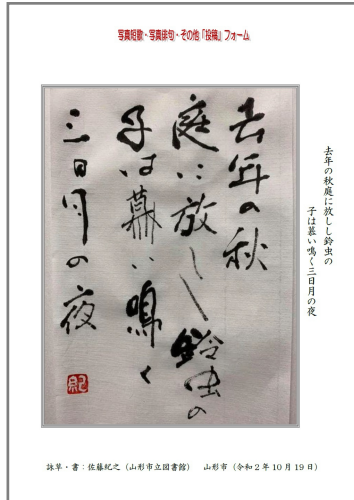 写真短歌・写真俳句・その他『投稿』フォーム
去年の秋
庭に放しし鈴虫の
子は慕い鳴く
三日月の夜
紀
去年の秋庭に放しし鈴虫の
子は慕い鳴く三日月の夜
詠草・書：佐藤紀之（山形市立図書館）　山形市（令和２年10月19日）